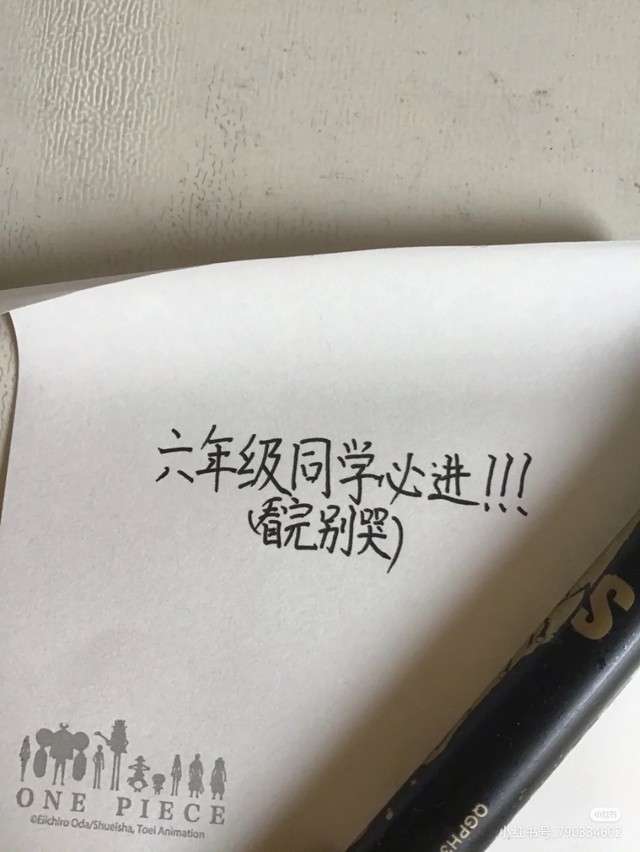 六年级同学必进!!!
(看完别哭)
S
QGPH3
ONE PIECE
©Eiichiro Oda/Shueisha, Toei Animation
小红书
小红书号: 790334602